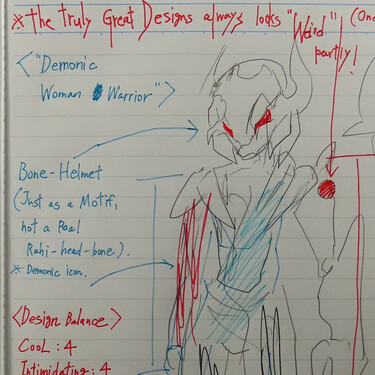 ※The Truly Great Designs always looks "Weird" (One
partly!
<"Demonic
Woman Warrior">
Bone-Helmet
(Just as a Motif,
not a Real
Rahi-head-bone).
※: Demonic icon.
<Design Balance>
COOL: 4
Intimidating: 4